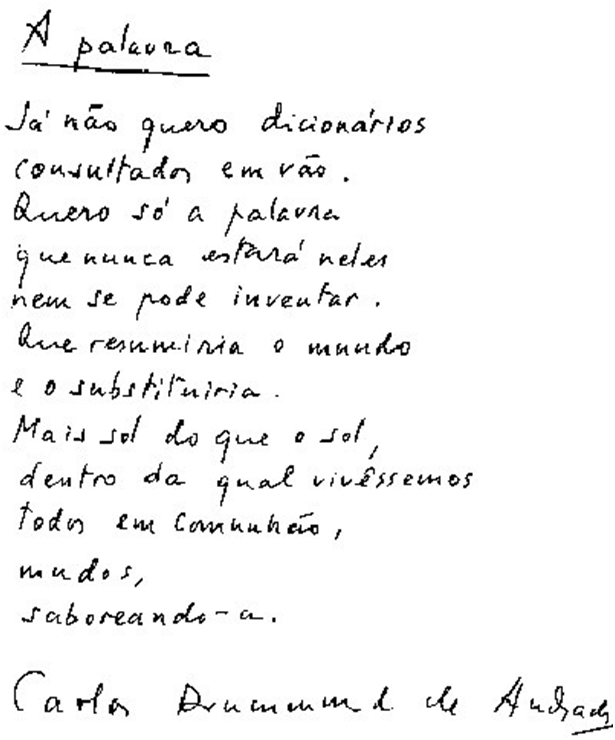 A palavra
Já não quero dicionários
consultados em vão.
Quero só a palavra
que nunca estará neles
nem se pode inventar.
Que resumiria o mundo
e o substituiria.
Mais sol do que o sol,
dentro da qual vivêssemos
todos em comunhão,
mudos,
saboreando-a.
Carlos Drummond de Andrade